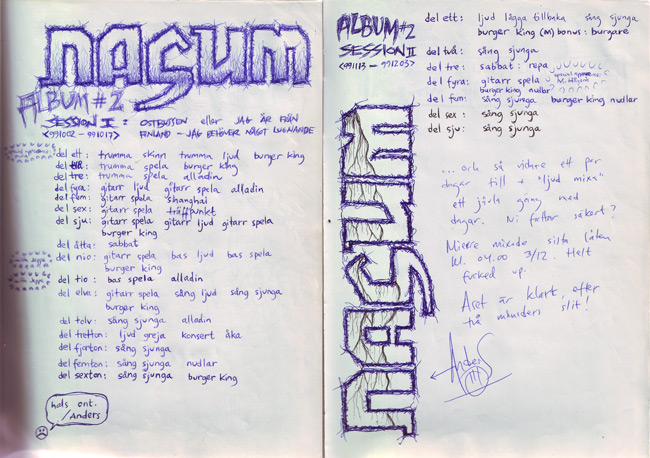 NASUM
ALBUM #2
SESSION I : OSTBÅGEN eller JAG ÄR FRÅN
<991002 – 991017> FINLAND – JAG BEHÖVER NÅGOT LUGNANDE
del ett : trumma skinn trumma ljud burger king
del två : trumma spela burger king
del tre : trumma spela alladin
del fyra : gitarr ljud gitarr spela alladin
del fem : gitarr spela shanghai
del sex : gitarr spela träffpunkt
del sju : gitarr spela gitarr ljud gitarr spela
burger king
del åtta : sabbat
del nio : gitarr spela bas ljud bas spela
burger king
del tio : bas spela alladin
del elva : gitarr spela sång ljud sång sjunga
burger king
del tolv : sång sjunga alladin
del tretton : ljud greja konsert åka
del fjorton : sång sjunga
del femton : sång sjunga nudlar
del sexton : sång sjunga burger king
hals ont.
/Anders
ALBUM #2
SESSION II
<991113 – 991203>
del ett : ljud lägga tillbaka sång sjunga
burger king (m) bonus : burgare
del två : sång sjunga
del tre : sabbat : repa
del fyra : gitarr spela
burger king nudlar
del fem : sång sjunga burger king nudlar
del sex : sång sjunga
del sju : sång sjunga
... och så vidare ett par
dagar till + "ljud mixa"
ett jävla gäng med
dagar. Ni fattar säkert?
Mieszko mixade sista låten
kl. 04.00 3/12. Helt
fucked up.
Året är klart, efter
två månaders slit!
Anders
NASUM